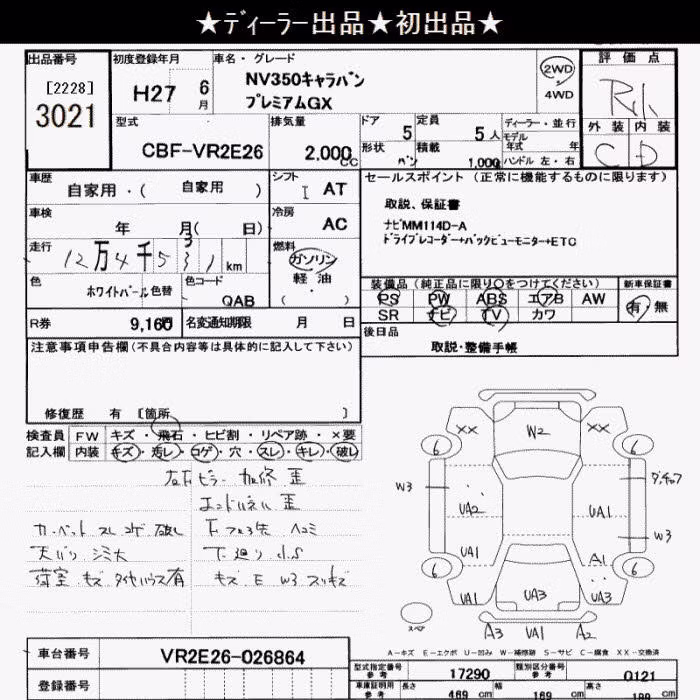 ★ディーラー出品★初出品★
出品番号
[2228]
3021
初度登録年月
H27 6月
車名・グレード
NV350キャラバン
プレミアムGX
2WD
4WD
評価点
外装 内装
C D
型式
CBF-VR2E26
排気量
2,000cc
ドア 5
定員 5人
形状 バン
積載 1,000
ディーラー・並行
モデル年式 年
ハンドル 左・右
車歴
自家用・( 自家用 )
シフト
I AT
車検
年 月( 日)
冷房
AC
走行
12万4千531km
燃料
ガソリン
軽油
( ・ )
色
ホワイトパール 色替
色コード
QAB
R券 9,160
名変通知期限 月 日
セールスポイント(正常に機能するものに限ります)
取説、保証書
ナビMM114D-A
ドライブレコーダー+バックビューモニター+ETC
装備品(純正品に限り○をつけてください)
PS PW ABS エアB AW
SR ナビ TV カワ
新車保証書
有・無
後日品
取説・整備手帳
注意事項申告欄(不具合内容等は具体的に記入して下さい)
修復歴 有 [箇所 ]
検査員記入欄
FW キズ・飛石・ヒビ割・リペア跡・×要
内装 キズ・汚レ・コゲ・穴・スレ・キレ・破レ
カーペット スレ コゲ 破レ
天バリ シミ大
荷室 キズ タイヤハウス有
下廻り小S
キズ E W3 スリキズ
XX W2 XX
6 6
W3
UA2 UA1
W3
UA1 A1
6 6
UA1 UA3 UA3
スペア
A3 UA1 A2
A-キズ E-エクボ U-凹み W-補修跡 S-サビ C-腐食 XX-交換済
車台番号
VR2E26-026864
登録番号
型式指定番号 参考
17290
類別区分番号 参考
0121
車庫証明用 参考
長さ 469 cm
幅 169 cm
高さ 199 cm